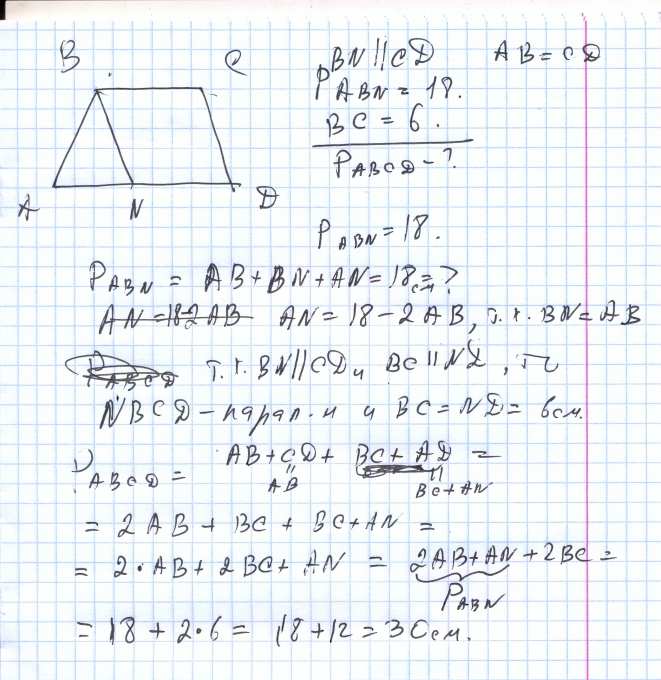 B C
BN || CD AB = CD
P ABN = 18.
BC = 6.
P ABCD - ?
A N D
P ABN = 18.
P ABN = AB + BN + AN = 18 см = ?
AN = 18 - 2AB AN = 18 - 2AB, т.к. BN = AB
P ABCD т.к. BN || CD и BC || ND, то
NBCD - парал-м и BC = ND = 6 см.
P ABCD = AB + CD + BC + AD =
AB BC + AN
= 2AB + BC + BC + AN =
= 2·AB + 2BC + AN = 2AB + AN + 2BC =
P ABN
= 18 + 2·6 = 18 + 12 = 30 см.